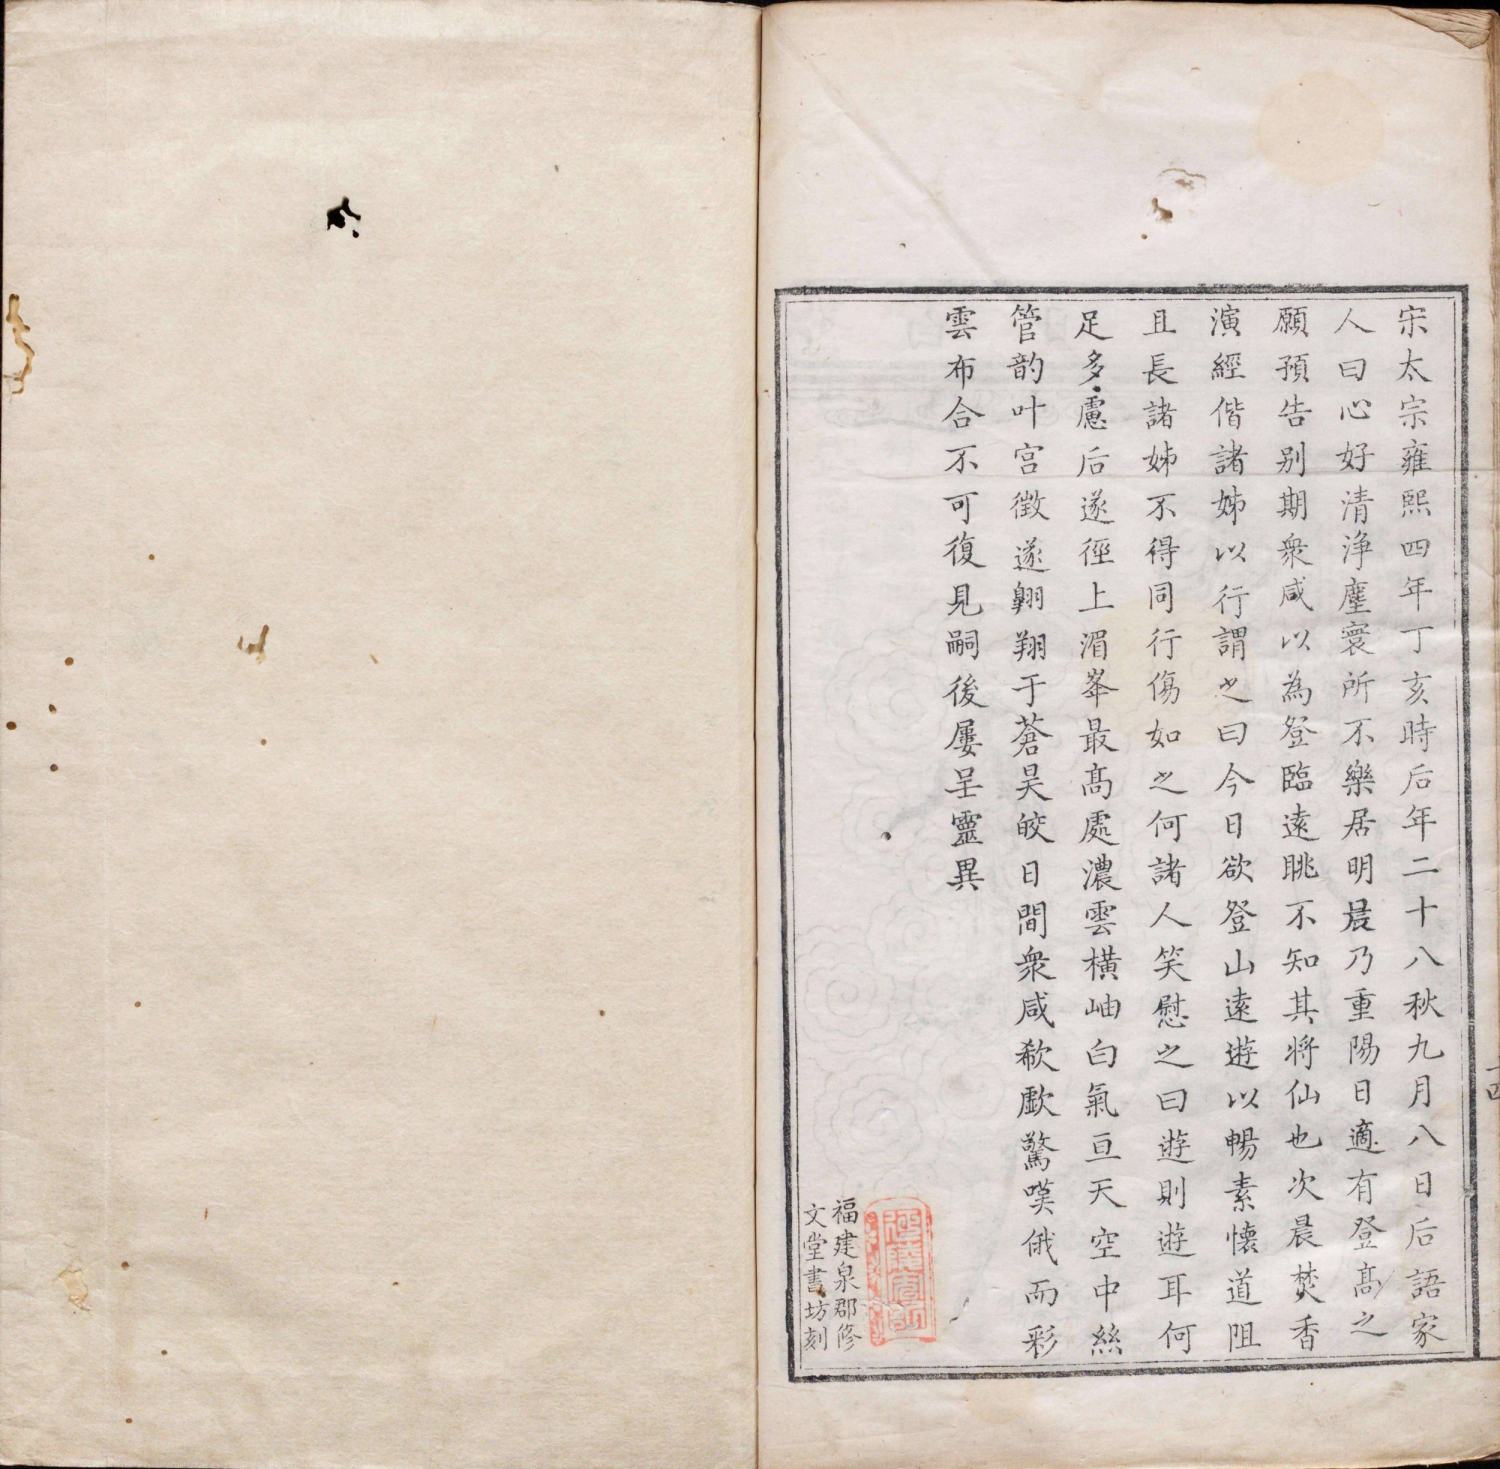 宋太宗雍熙四年丁亥時后年二十八秋九月八日后語家
人曰心好清淨塵寰所不樂居明晨乃重陽日適有登髙之
願預告别期衆咸以為登臨遠眺不知其将仙也次晨焚香
演經偕諸姊以行謂之曰今日欲登山遠遊以暢素懐道阻
且長諸姊不得同行傷如之何諸人笑慰之曰遊則遊耳何
足多慮后遂徑上湄峯最髙處濃雲横岫白氣亘天空中絲
管韵叶宫徵遂翱翔于蒼昊皎日間衆咸欷歔驚嘆俄而彩
雲布合不可復見嗣後屢呈靈異
福建泉郡修
文堂書坊刻
十四